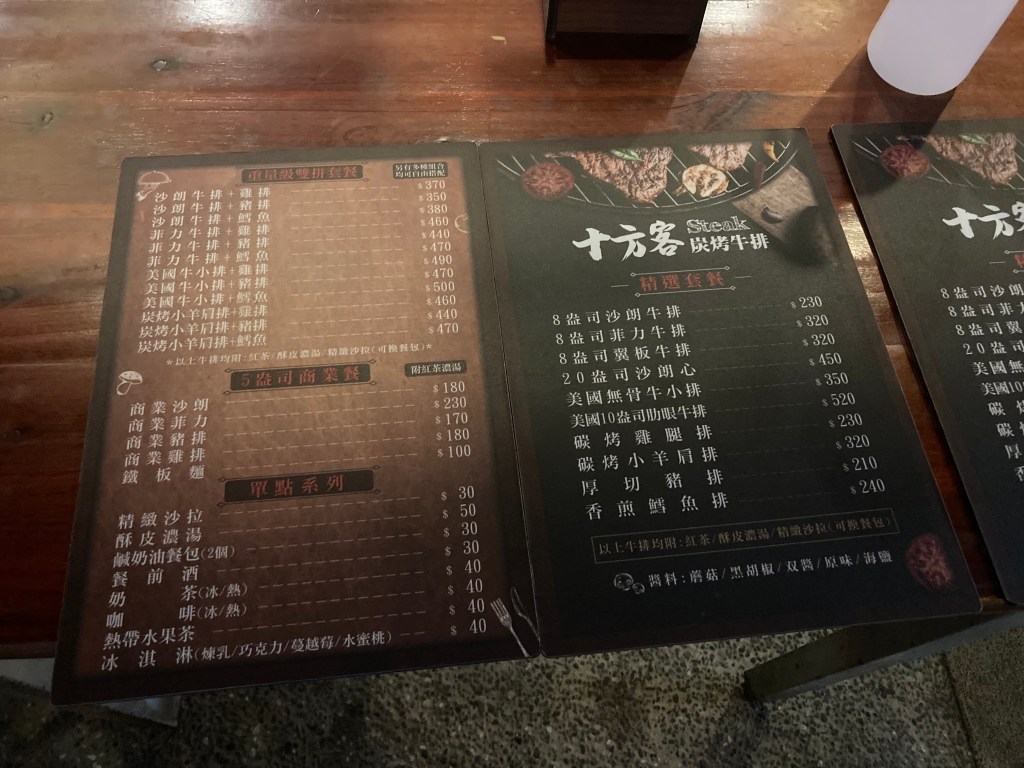 重量級雙拼套餐 另有多種組合
均可自由搭配
沙朗牛排+雞排 $370
沙朗牛排+豬排 $350
沙朗牛排+鱈魚 $380
菲力牛排+雞排 $460
菲力牛排+豬排 $440
菲力牛排+鱈魚 $470
美國牛小排+雞排 $490
美國牛小排+豬排 $470
美國牛小排+鱈魚 $500
炭烤小羊肩排+雞排 $460
炭烤小羊肩排+豬排 $440
炭烤小羊肩排+鱈魚 $470
*以上牛排均附:紅茶/酥皮濃湯/精緻沙拉(可換餐包)*
5盎司商業餐 附紅茶濃湯
商業沙朗 $180
商業菲力 $230
商業豬排 $170
商業雞排 $180
鐵板麵 $100
單點系列
精緻沙拉 $30
酥皮濃湯 $50
鹹奶油餐包(2個) $30
餐前酒 $30
奶茶(冰/熱) $40
咖啡(冰/熱) $40
熱帶水果茶 $40
冰淇淋(煉乳/巧克力/蔓越莓/水蜜桃) $40
十方客 Steak
炭烤牛排
精選套餐
8盎司沙朗牛排 $230
8盎司菲力牛排 $320
8盎司翼板牛排 $320
20盎司沙朗心 $450
美國無骨牛小排 $350
美國10盎司肋眼牛排 $520
碳烤雞腿排 $230
碳烤小羊肩排 $320
厚切豬排 $210
香煎鱈魚排 $240
以上牛排均附:紅茶/酥皮濃湯/精緻沙拉(可換餐包)
醬料:蘑菇/黑胡椒/双醬/原味/海鹽
十方
8盎司沙朗
8盎司菲力
8盎司翼
20盎司
美國無
美國10
碳烤
碳
厚
香